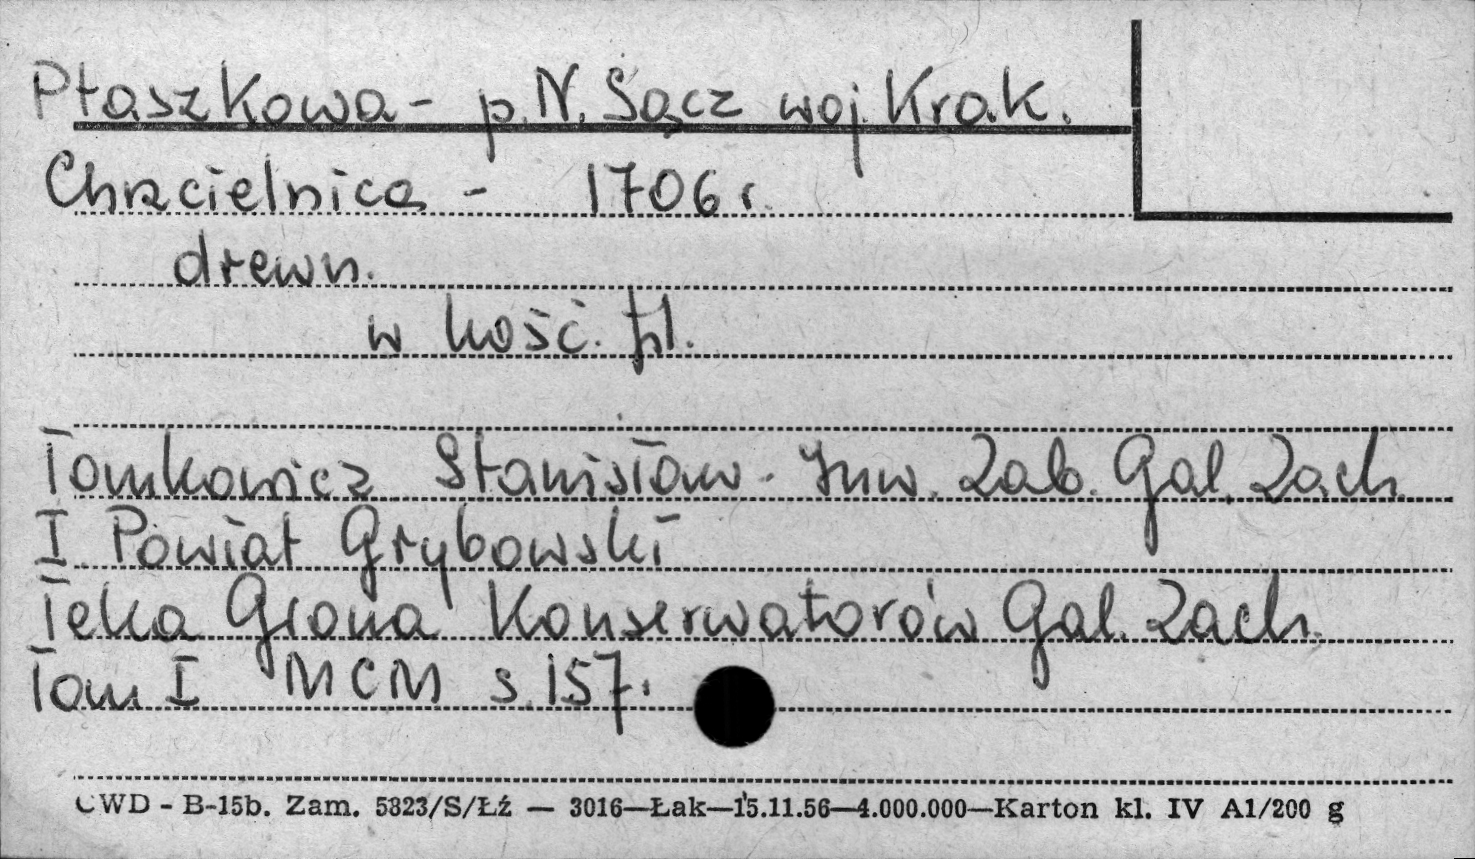 Ptaszkowa - p. N. Sącz woj. Krak.
Chrzcielnica - 1706 r.
drewn.
w kość. fil.
Tomkowicz Stanisław - Inw. Zab. Gal. Zach.
I Powiat Grybowski
Teka Grona Konserwatorów Gal. Zach.
Tom I MCM s. 157.
CWD - B-15b. Zam. 5823/S/Łź — 3016—Łak—15.11.56—4.000.000—Karton kl. IV A1/200 g